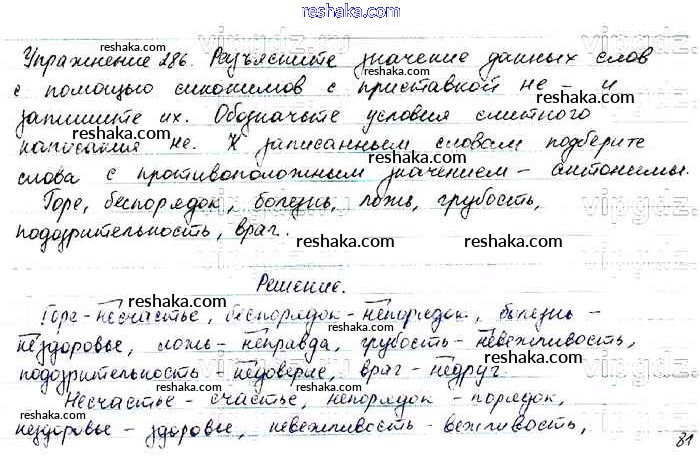 reshaka.com
Упражнение 286. Разъясните значение данных слов
с помощью синонимов с приставкой не - и
запишите их. Обозначьте условия слитного
написания не. К записанным словам подберите
слова с противоположным значением - антонимы.
Горе, беспорядок, болезнь, ложь, грубость,
подозрительность, враг.
Решение.
Горе - несчастье, беспорядок - непорядок, болезнь -
нездоровье, ложь - неправда, грубость - невежливость,
подозрительность - недоверие, враг - недруг.
Несчастье - счастье, непорядок - порядок,
нездоровье - здоровье, невежливость - вежливость,
81